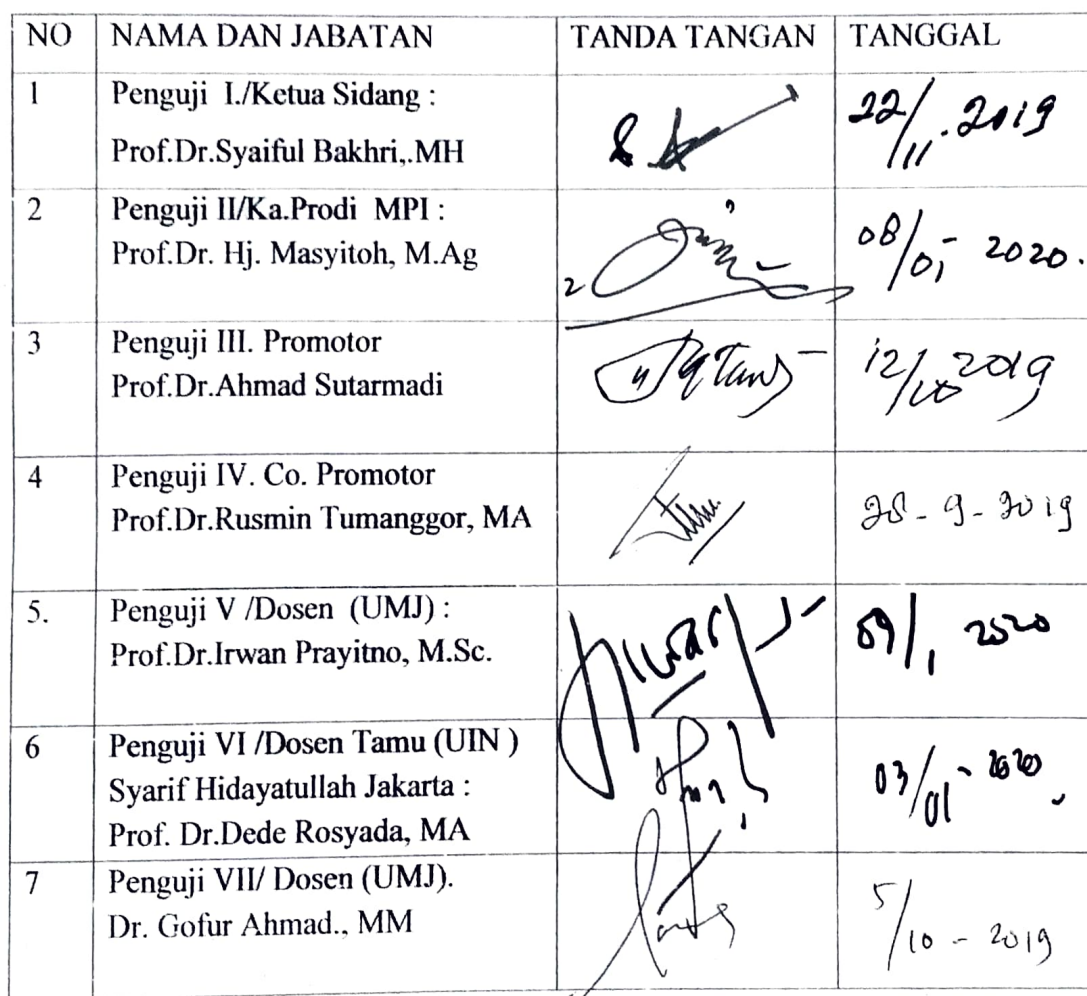 NO NAMA DAN JABATAN TANDA TANGAN TANGGAL
1 Penguji I./Ketua Sidang :
Prof.Dr.Syaiful Bakhri,.MH
22/11.2019
2 Penguji II/Ka.Prodi MPI :
Prof.Dr. Hj. Masyitoh, M.Ag
08/01- 2020.
3 Penguji III. Promotor
Prof.Dr.Ahmad Sutarmadi
12/10 2019
4 Penguji IV. Co. Promotor
Prof.Dr.Rusmin Tumanggor, MA
28 - 9 - 2019
5. Penguji V /Dosen (UMJ) :
Prof.Dr.Irwan Prayitno, M.Sc.
09/1 2020
6 Penguji VI /Dosen Tamu (UIN )
Syarif Hidayatullah Jakarta :
Prof. Dr.Dede Rosyada, MA
03/01 - 2020
7 Penguji VII/ Dosen (UMJ).
Dr. Gofur Ahmad., MM
5/10 - 2019